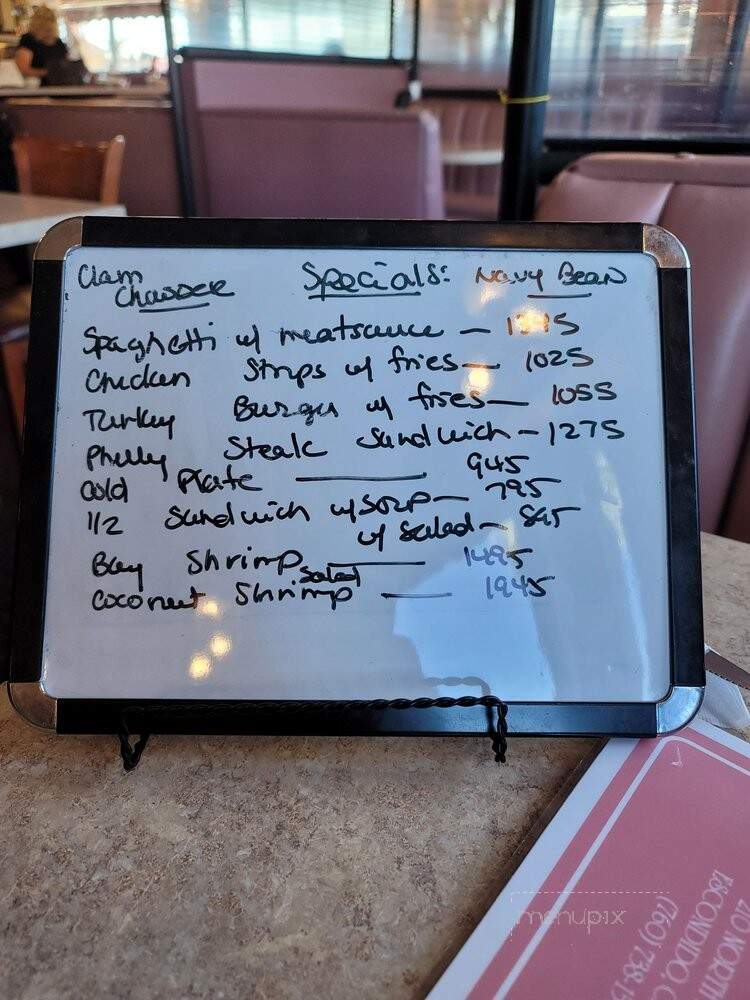 Clam Chowder
Specials:
Navy Bean
Spaghetti w/ meatsauce —
Chicken Strips w/ fries — 1025
Turkey Burger w/ fries — 1055
Philly Steak Sandwich - 1275
Cold Plate — 945
1/2 Sandwich w/ soup — 795
w/ Salad —
Bay Shrimp Salad — 1495
Coconut Shrimp — 1945
menupix
NORTH
ESCONDIDO, C
(760) 738-